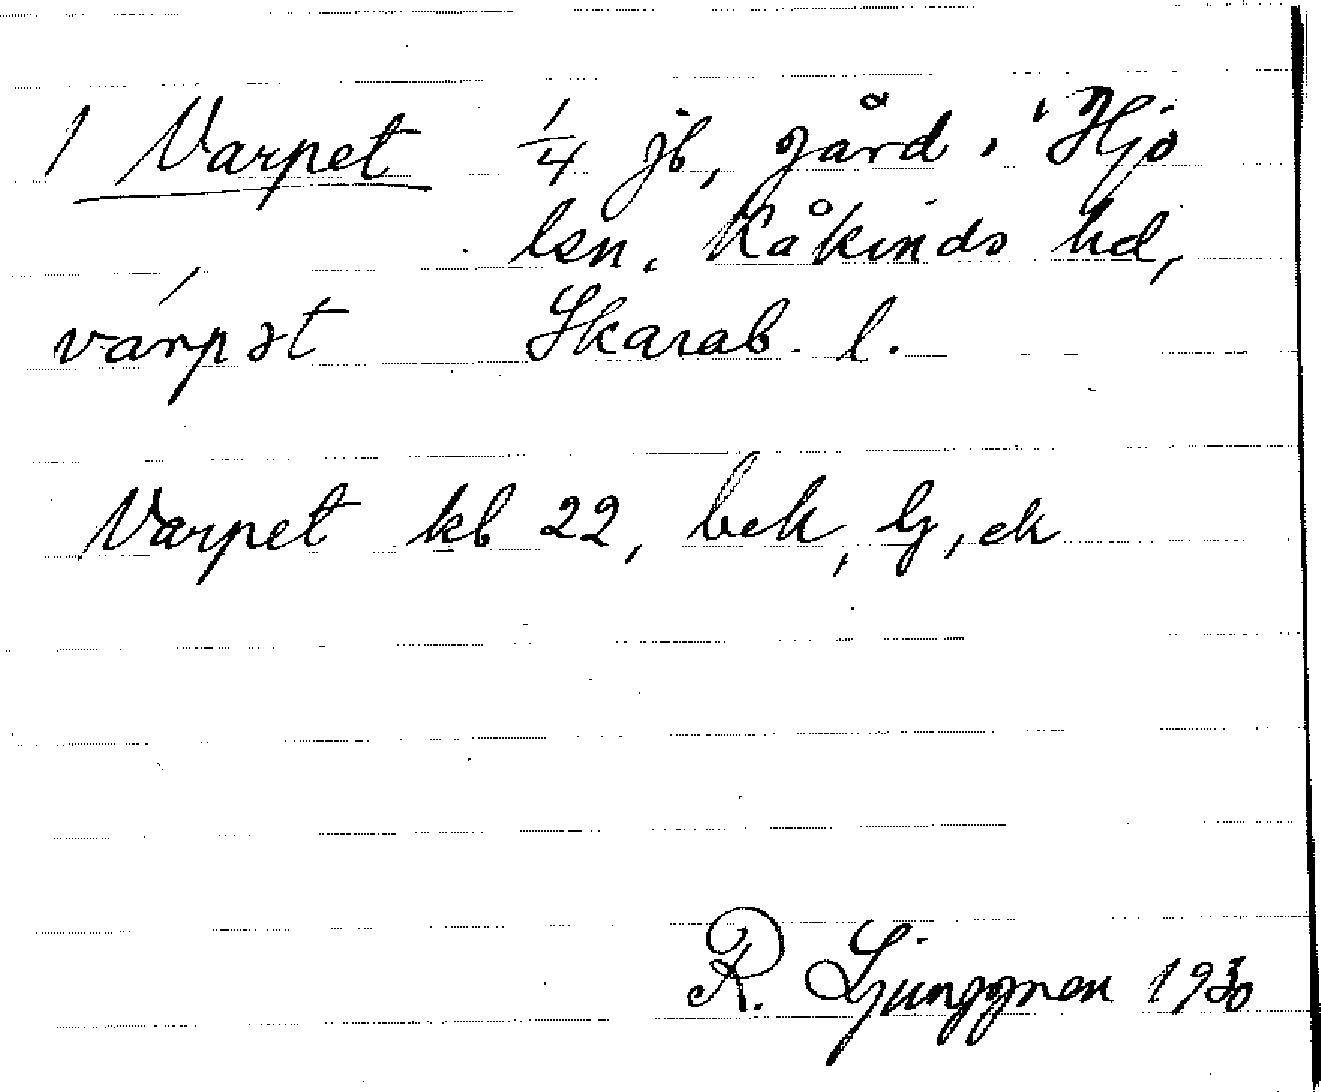 1 Varpet 1/4 jb, gård i Hjo
lsn. Kåkinds hd,
várpət Skarab. l.
Varpet kb 22, bek, lg, ek
R. Ljunggren 1930